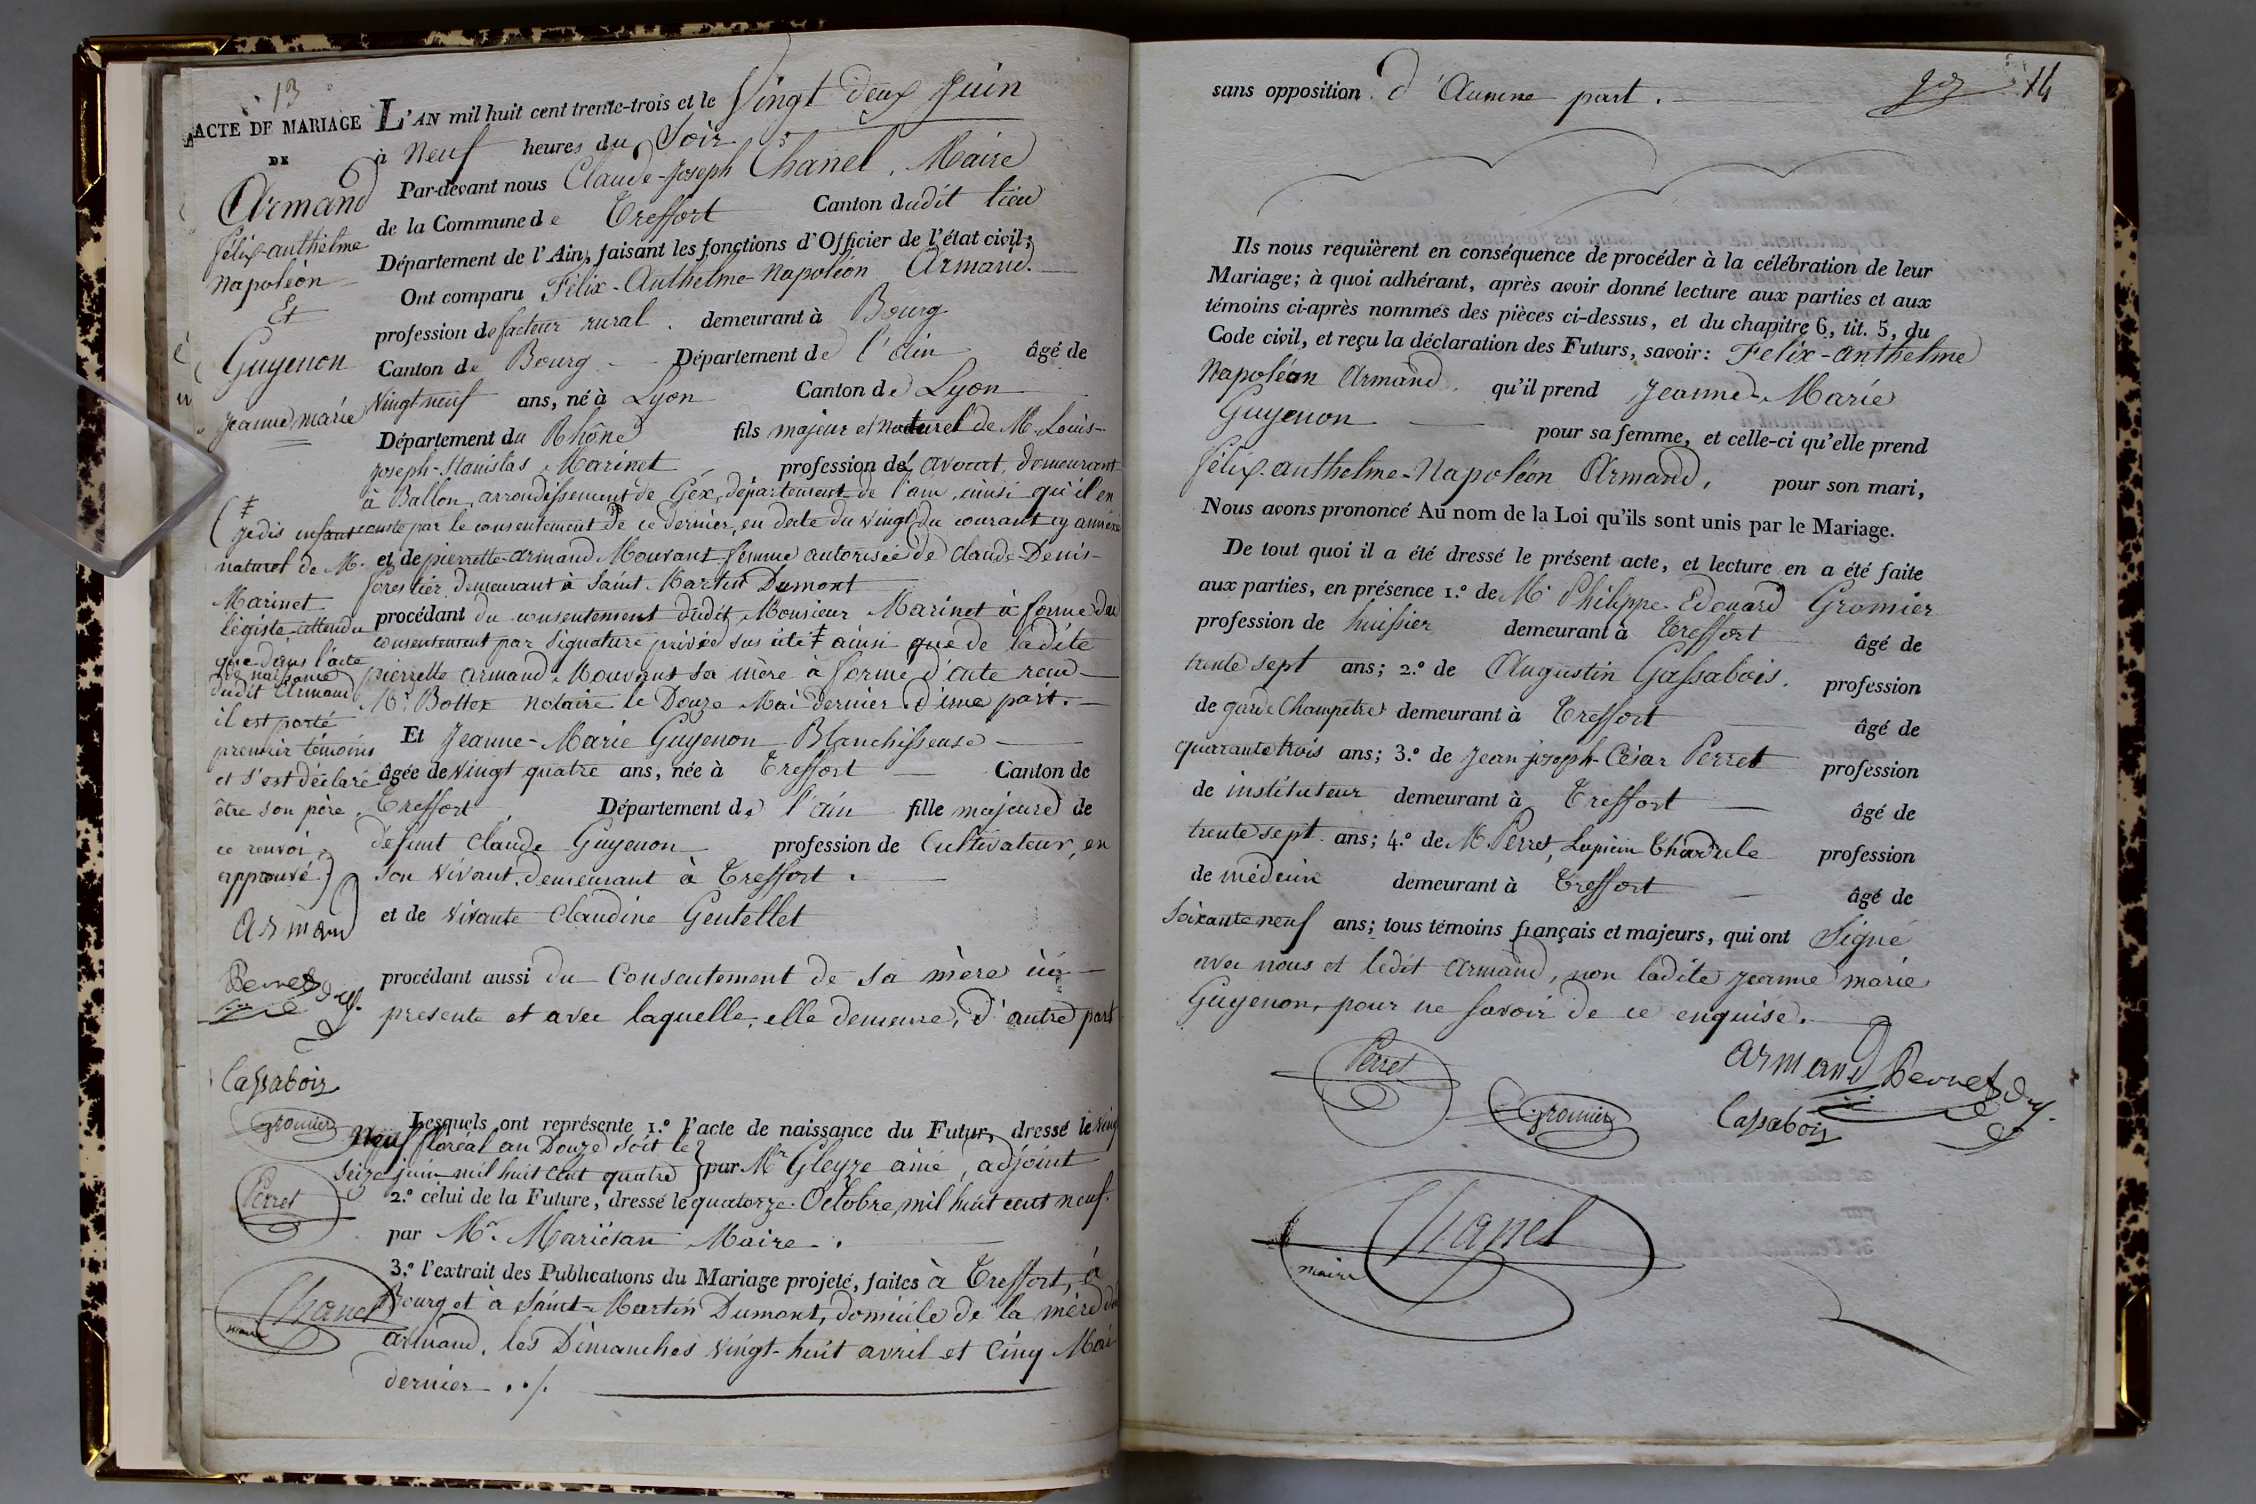 13
ACTE DE MARIAGE
DE
Armand
félix-anthelme
napoléon
Et
Guyenon
Jeanne marie
L'AN mil huit cent trente-trois et le Vingt deux Juin
à Neuf heures du Soir
Par-devant nous Claude-Joseph Chanel, Maire
de la Commune de Treffort Canton dudit lieu
Département de l'Ain, faisant les fonctions d'Officier de l'état civil;
Ont comparu Félix-Anthelme-Napoléon Armand.
profession de facteur rural. demeurant à Bourg
Canton de Bourg Département de l'ain âgé de
Vingt neuf ans, né à Lyon Canton de Lyon
Département du Rhône fils majeur et naturel de Mr. Louis-
Joseph-Stanislas Marinet profession d' avocat, demeurant
à Ballon, arrondissement de Gex, département de l'ain, ainsi qu'il en
conste par le consentement de ce dernier, en date du vingt du courant cy annexé
et de pierrette-armand Mouvant femme autorisée de Claude-Denis-
forestier, demeurant à Saint Martin Dumont
procédant du consentement dudit Monsieur Marinet à forme du
consentement par signature privée sus cité ‡ ainsi que de ladite
pierrette armand Mouvant sa mère à forme d'acte reçu
Mr. Bottex notaire le Douze Mai dernier d'une part.
Et Jeanne-Marie Guyenon Blanchisseuse
âgée de vingt quatre ans, née à Treffort Canton de
Treffort Département de l'ain fille majeure de
défunt Claude Guyenon profession de Cultivateur, en
son vivant, demeurant à Treffort.
et de vivante Claudine Gentellet
procédant aussi du Consentement de sa mère ici
presente et avec laquelle, elle demeure, d'autre part
Lesquels ont représenté 1.º l'acte de naissance du Futur, dressé le vingt
Neuf floréal an Douze soit le
seize juin mil huit cent quatre } par Mr. Gleyze ainé, adjoint
2.º celui de la Future, dressé le quatorze Octobre, mil huit cent neuf.
par Mr. Mariétan Maire.
3.º l'extrait des Publications du Mariage projeté, faites à Treffort, à
Bourg et à Saint-Martin Dumont, domicile de la mère dud
armand, les Dimanches vingt-huit avril et Cinq Mai
dernier ../.
‡
je dis enfant
naturel de M.
Marinet
légiste attendu
que dans l'acte
de naissance
dudit Armand
il est porté
premier témoins
et s'est déclaré
être son père.
ce renvoi
approuvé)
armand
Perret
Cassabois
Gromier
Perret
Chanel
maire
14
sans opposition d'Aucune part.
Ils nous requièrent en conséquence de procéder à la célébration de leur
Mariage; à quoi adhérant, après avoir donné lecture aux parties et aux
témoins ci-après nommés des pièces ci-dessus, et du chapitre 6, tit. 5, du
Code civil, et reçu la déclaration des Futurs, savoir: Felix-anthelme
Napoléon Armand, qu'il prend Jeanne Marie
Guyenon pour sa femme, et celle-ci qu'elle prend
félix-anthelme-Napoléon Armand, pour son mari,
Nous avons prononcé Au nom de la Loi qu'ils sont unis par le Mariage.
De tout quoi il a été dressé le présent acte, et lecture en a été faite
aux parties, en présence 1.º de Mr. Philippe Edouard Gromier
profession de huissier demeurant à Treffort âgé de
trente sept ans; 2.º de Augustin Cassabois. profession
de garde Champêtre demeurant à Treffort âgé de
quarante trois ans; 3.º de Jean joseph-César Perret profession
de instituteur demeurant à Treffort âgé de
trente sept ans; 4.º de M Perret, Lupicin profession
de médecin demeurant à Treffort âgé de
soixante neuf ans; tous témoins français et majeurs, qui ont Signé
avec nous et ledit Armand, non ladite jeanne marie
Guyenon, pour ne savoir de ce enquise.
Perret
Gromier
armand
Perret
Cassabois
Chanel
maire